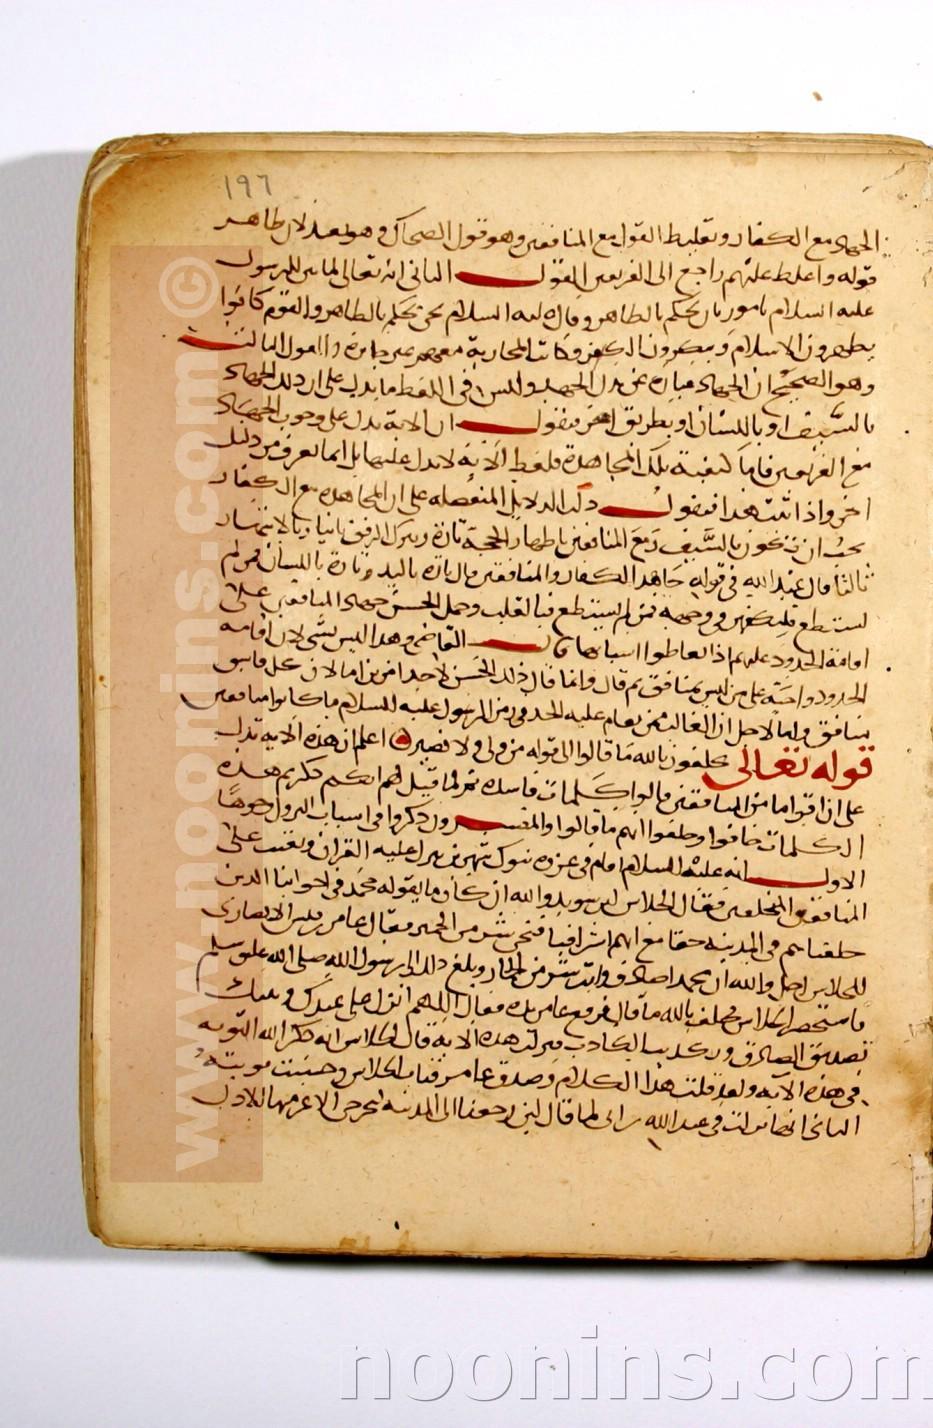 ١٩٦
الجهاد مع الكفار وتغليظ القول مع المنافقين وهو قول الضحاك وهو بعيد لان ظاهر
قوله واغلظ عليهم راجع الى الفريقين القول الثاني انه تعالى لما بين للرسول
عليه السلام مامور بان يحكم بالظاهر وقال عليه السلام نحن نحكم بالظاهر والقوم كانوا
يظهرون الاسلام وينكرون الكفر وكانت المحاربة معهم غير جايزة والقول الثالث
وهو الصحيح ان الجهاد عبارة عن بذل الجهد وليس في اللفظ ما يدل على ان ذلك الجهاد
بالسيف او باللسان او بطريق اخر فنقول ان الاية تدل على وجوب الجهاد
مع الفريقين فاما كيفية تلك المجاهدة فلفظ الآية لا يدل عليها بل انما يعرف من دليل
اخر واذا ثبت هذا فنقول دلت الدلايل المنفصلة على ان المجاهدة مع الكفار
يجب ان تكون بالسيف ومع المنافقين باظهار الحجة تارة وبترك الرفق ثانيا وبالانتهار
ثالثا قال عبد الله في قوله جاهد الكفار والمنافقين قال تارة باليد وتارة باللسان فمن لم
يستطع فليكفهر في وجهه فمن لم يستطع فبالقلب وحمل الحسن جهاد المنافقين على
اقامة الحدود عليهم اذا تعاطوا اسبابها قال القاضي وهذا ليس بشي لان اقامة
الحدود واجبة على من ليس بمنافق ثم قال وانما قال ذلك الحسن لاحد امرين اما لان كل فاسق
منافق واما لاجل ان الغالب ممن يقام عليه الحد في زمن الرسول عليه السلام ما كانوا منافقين
قوله تعالى يحلفون بالله ما قالوا الى قوله من ولي ولا نصير اعلم ان هذه الاية تدل
على ان اقواما من المنافقين قالوا كلمات فاسدة ثم لما قيل لهم انكم ذكرتم هذه
الكلمات خافوا وحلفوا انهم ما قالوا والمفسرون ذكروا في اسباب النزول وجوها
الاول انه عليه السلام اقام في غزوة تبوك شهرين ينزل عليه القران ويعيب على
المنافقين المتخلفين فقال الجلاس ابن سويد والله ان كان ما يقوله محمد في اخواننا الذين
خلفناهم في المدينة حقا مع انهم اشرافنا فنحن شر من الحمير فقال عامر بن قيس الانصاري
للجلاس اجل والله ان محمدا صادق وانت شر من الحمار وبلغ ذلك الى رسول الله صلى الله عليه وسلم
فاستحضر الجلاس فحلف بالله ما قال فرفع عامر يده فقال اللهم انزل على عبدك ونبيك
تصديق الصادق وتكذيب الكاذب فنزلت هذه الاية قال الجلاس انه ذكر الله التوبة
في هذه الآية ولقد قلت هذا الكلام وصدق عامر فتاب الجلاس وحسنت توبته
الثاني انها نزلت في عبد الله بن ابي لما قال لئن رجعنا الى المدينة ليخرجن الاعز منها الاذل
www.noonins.com©
noonins.com